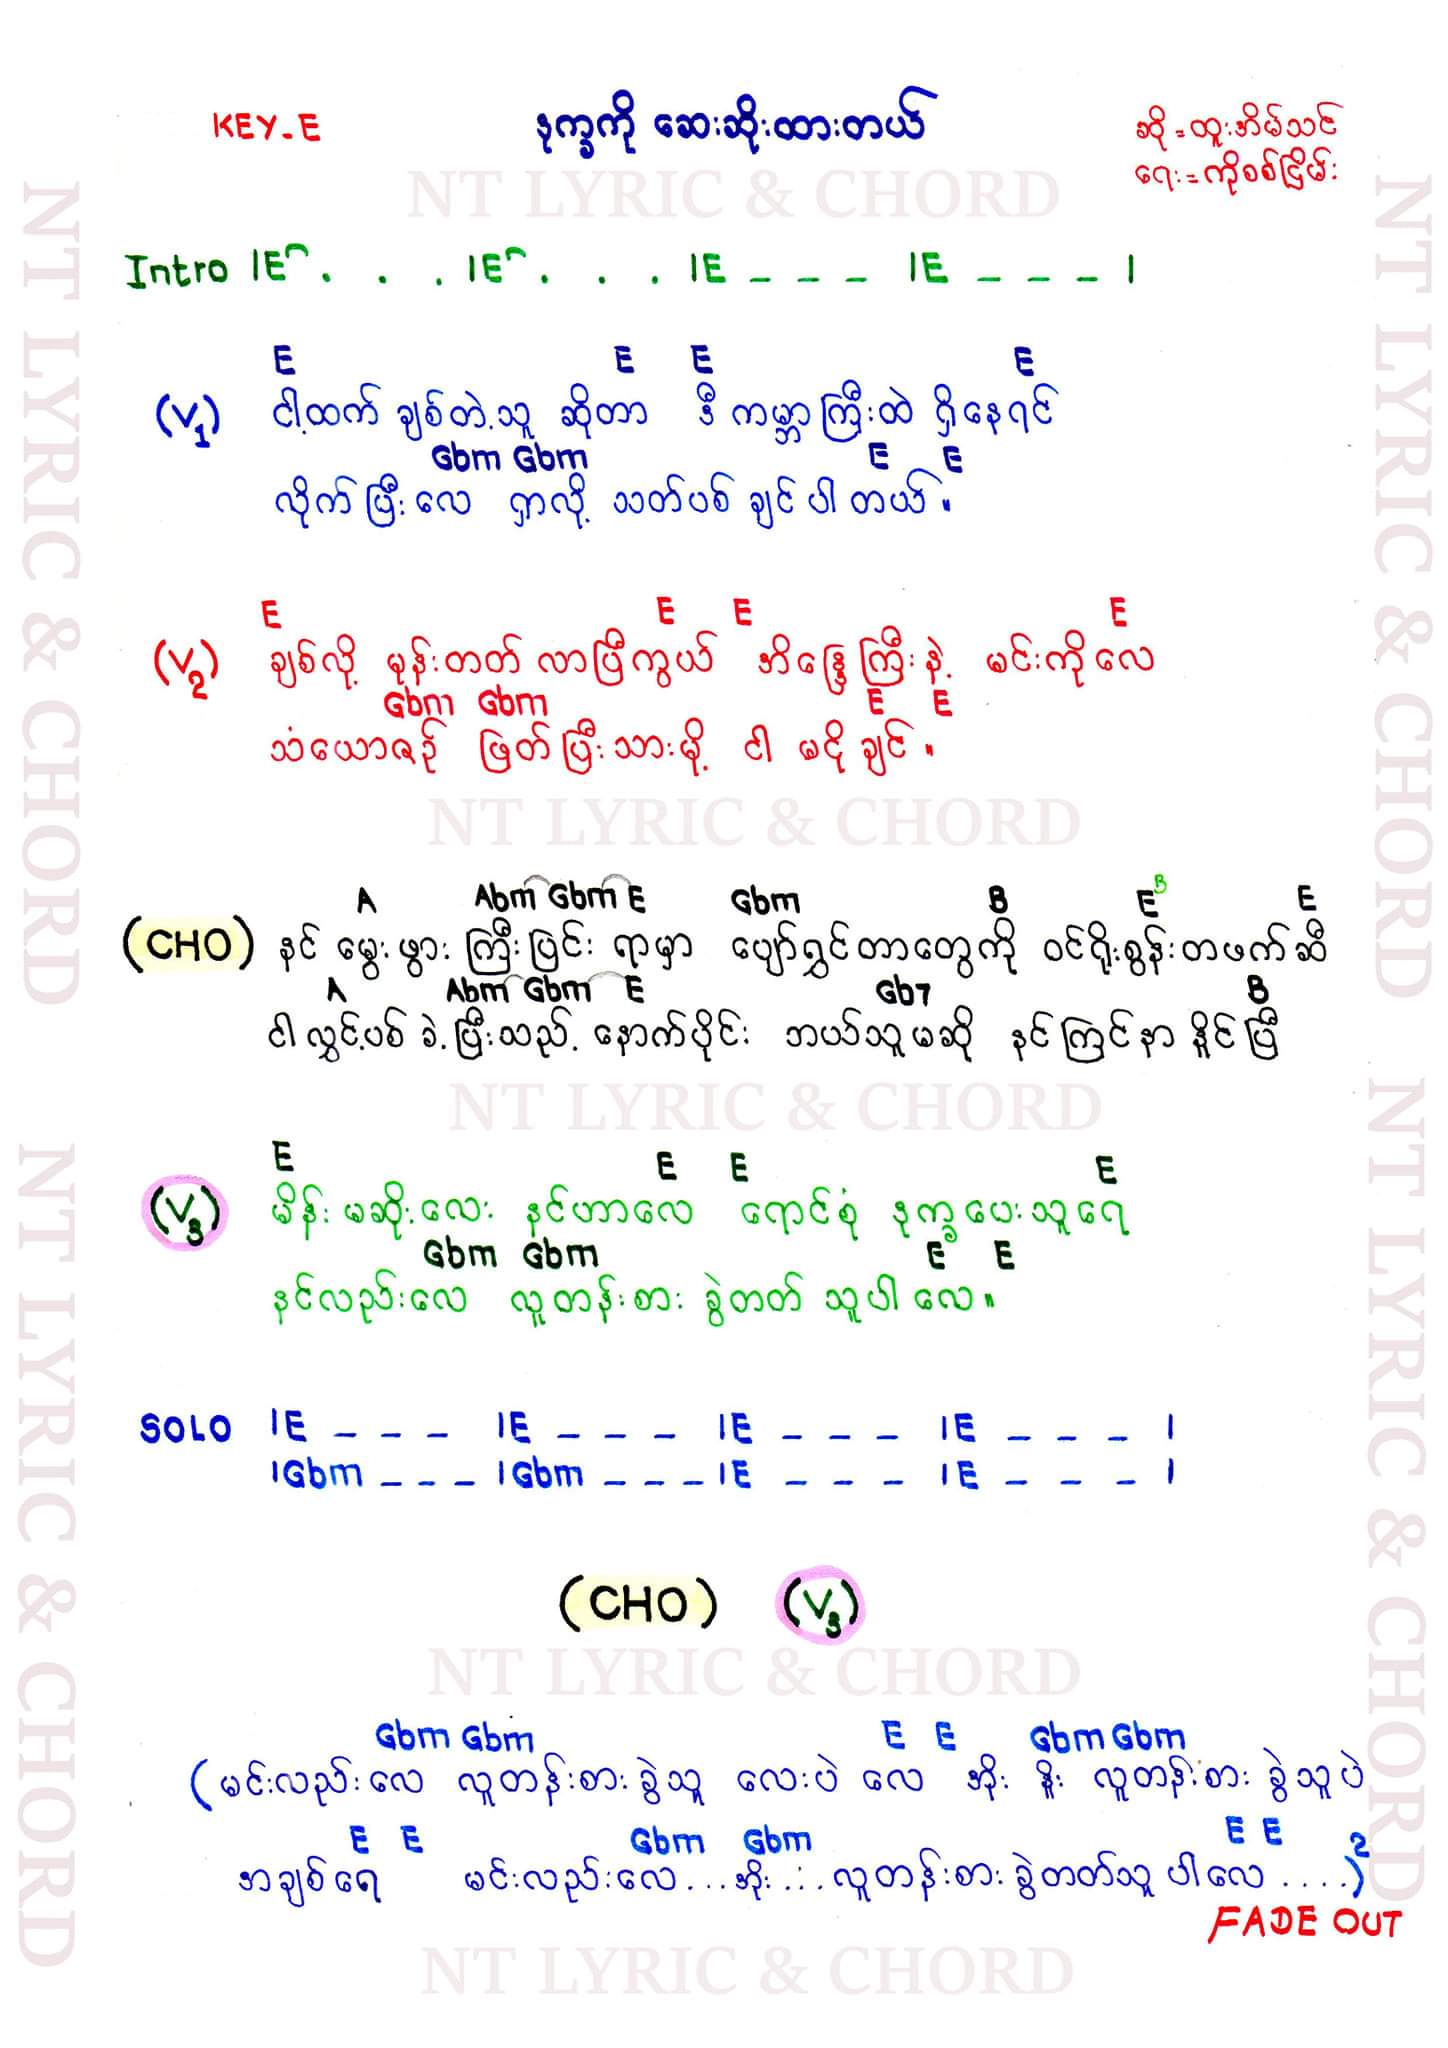 KEY-E
နက္ခကို ဆေးဆိုးထားတယ်
ဆို = ထူးအိမ်သင်
ရေး = ကိုစစ်ငြိမ်း
NT LYRIC & CHORD
Intro |E . . . |E . . . |E _ _ _ |E _ _ _ |
E E E E
(V1) ငါ့ထက် ချစ်တဲ့သူ ဆိုတာ ဒီ ကမ္ဘာကြီးထဲ ရှိနေရင်
Gbm Gbm E E
လိုက်ပြီးလေ ရှာလို့ သတ်ပစ် ချင်ပါတယ်။
E E E E
(V2) ချစ်လို့ မုန်းတတ်လာပြီကွယ် အိန္ဒြေကြီးနဲ့ မင်းကိုလေ
Gbm Gbm E E
သံယောဇဉ် ဖြတ်ပြီးသားမို့ ငါ မငိုချင်။
NT LYRIC & CHORD
A Abm Gbm E Gbm B E B E
(CHO) နင် မွေးဖွား ကြီးပြင်း ရာမှာ ပျော်ရွှင်တာတွေကို ဝင်ရိုးစွန်းတဖက်ဆီ
A Abm Gbm E Gb7 B
ငါလွှင့်ပစ်ခဲ့ပြီးသည့် နောက်ပိုင်း ဘယ်သူမဆို နင်ကြင်နာ နိူင်ပြီ
NT LYRIC & CHORD
E E E E
(V3) မိန်းမဆိုးလေး နင်ဟာလေ ရောင်စုံ နက္ခပေးသူရေ
Gbm Gbm E E
နင်လည်းလေ လူတန်းစား ခွဲတတ်သူပါလေ။
SOLO |E _ _ _ |E _ _ _ |E _ _ _ |E _ _ _ |
|Gbm _ _ _ |Gbm _ _ _ |E _ _ _ |E _ _ _ |
(CHO) (V3)
NT LYRIC & CHORD
Gbm Gbm E E Gbm Gbm
(မင်းလည်းလေ လူတန်းစားခွဲသူ လေးပဲ လေ အိုး နိူး လူတန်းစား ခွဲသူပဲ
E E Gbm Gbm E E
အချစ်ရေ မင်းလည်းလေ...အိုး....လူတန်းစားခွဲတတ်သူပါလေ....)2
FADE OUT
NT LYRIC & CHORD
NT LYRIC & CHORD
NT LYRIC & CHORD
NT LYRIC & CHORD
NT LYRIC & CHORD